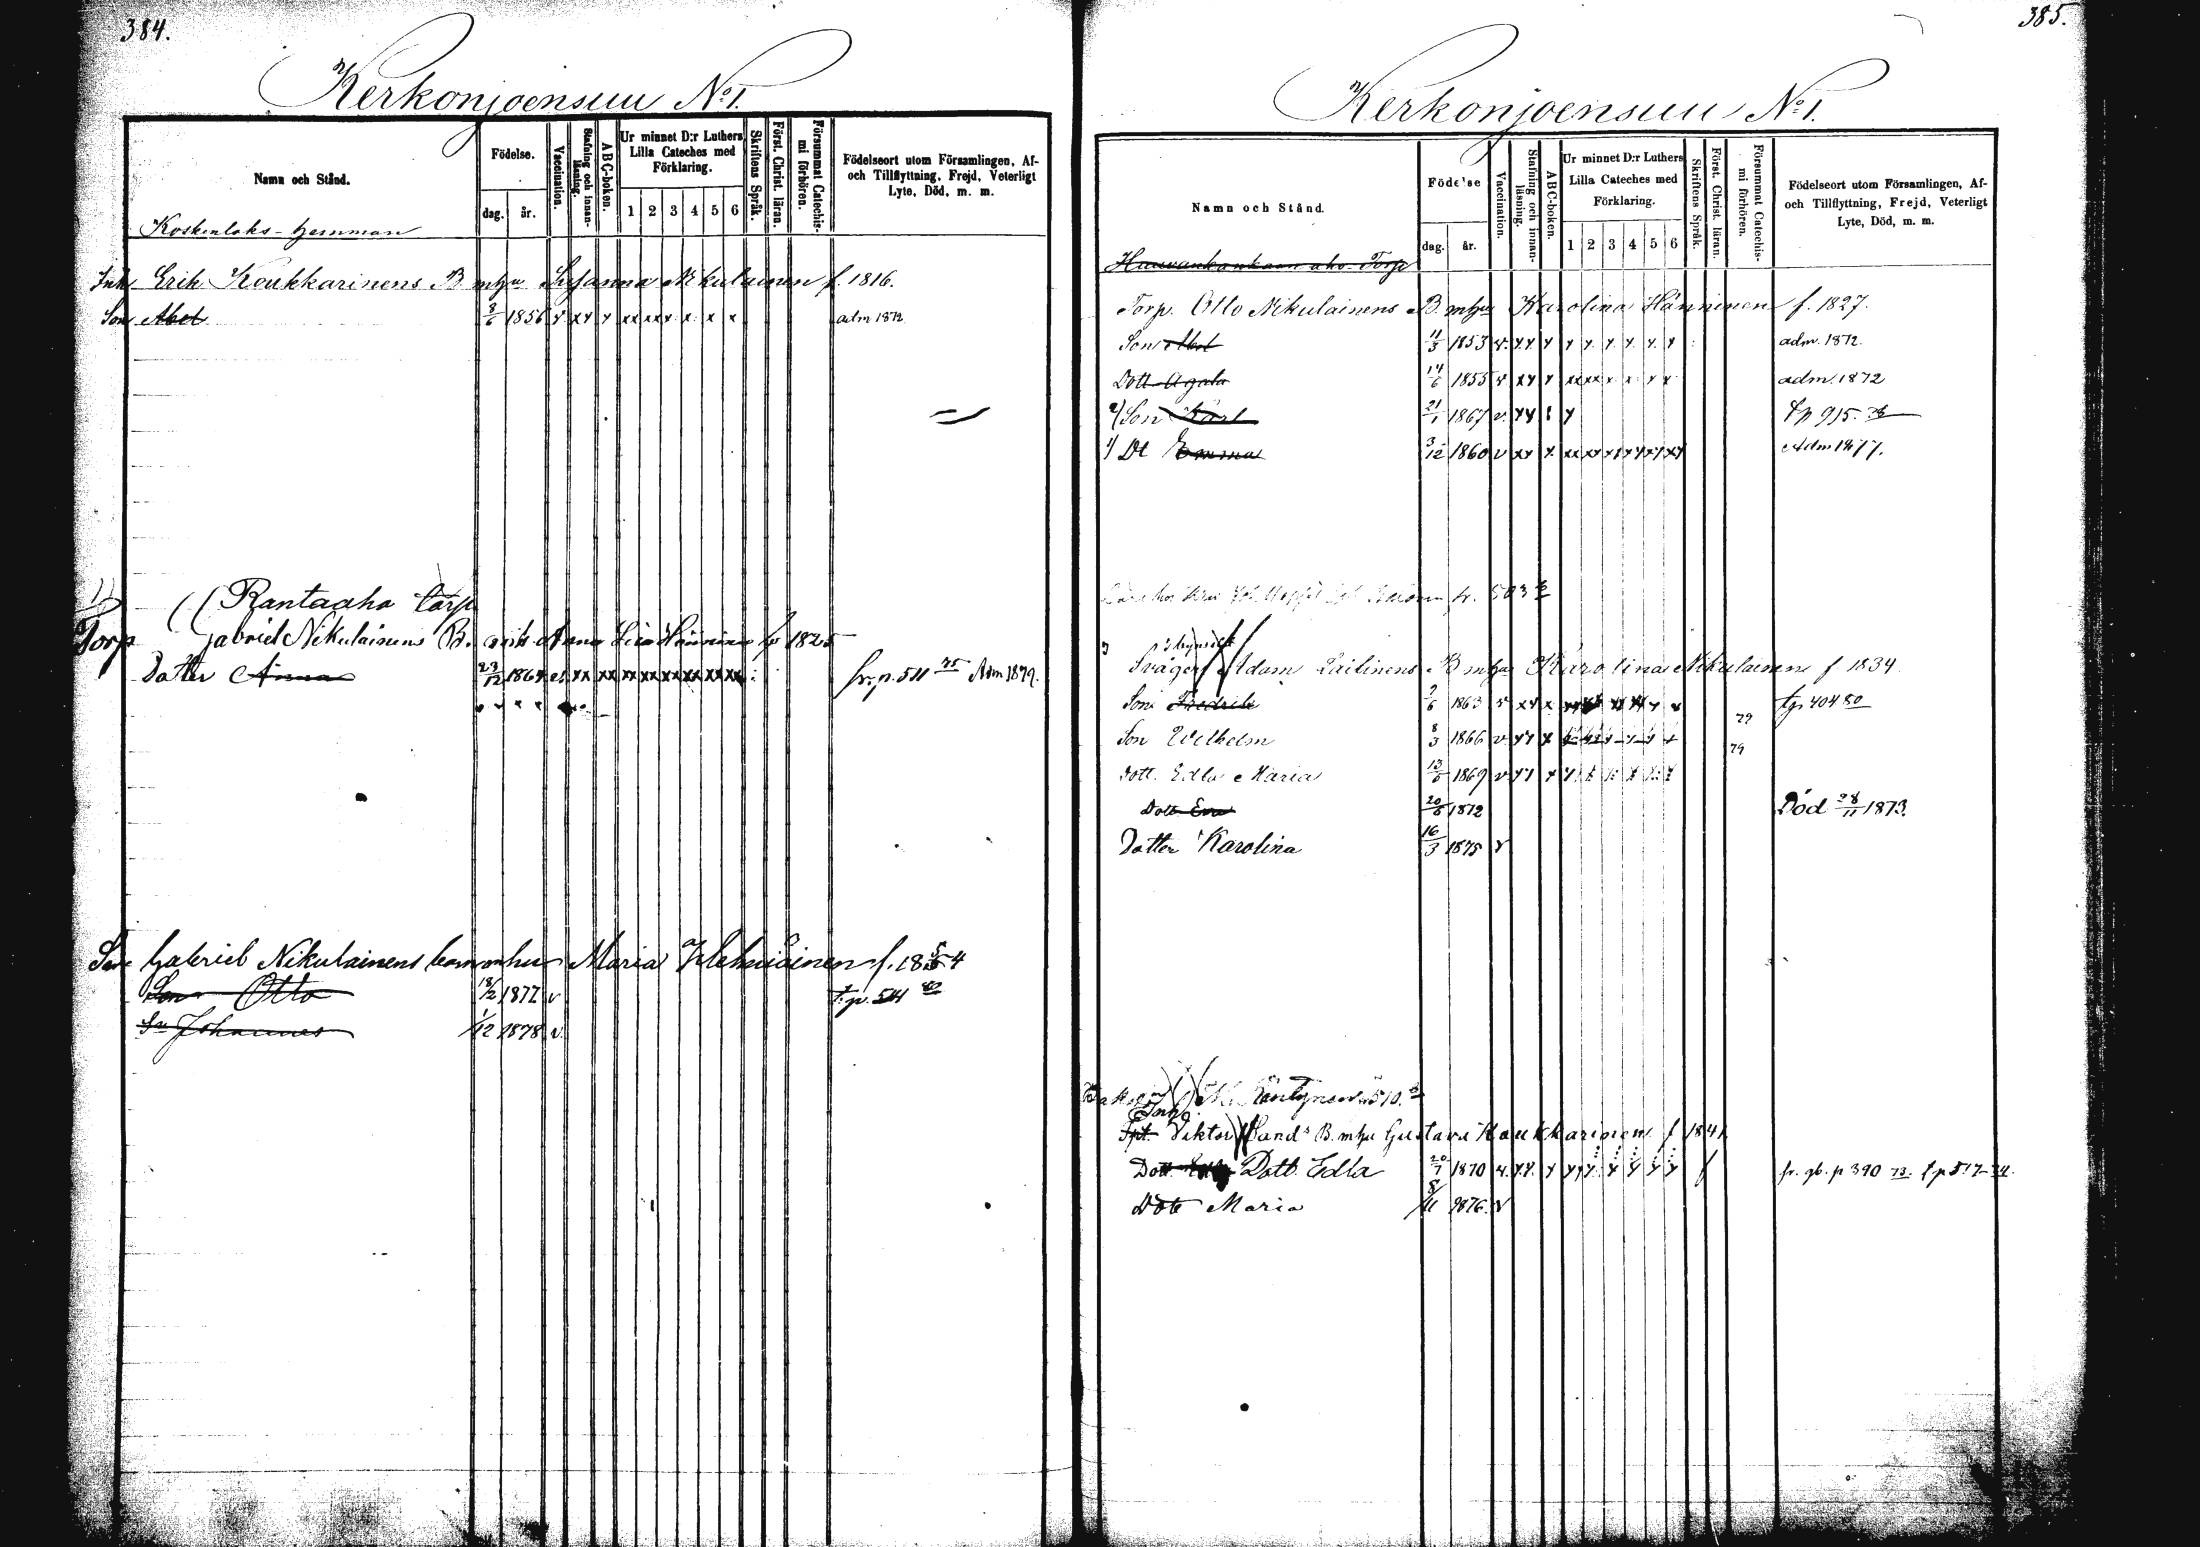 384.
Kerkonjoensuu No 1.
Namn och Stånd.
Födelse.
dag. år.
Vaccination.
Stafning och innan-läsning.
ABC-boken.
Ur minnet D:r Luthers Lilla Cateches med Förklaring.
1 2 3 4 5 6
Skriftens Språk.
Först. Christ. läran.
Försummat Catechis-mi förhören.
Födelseort utom Församlingen, Af- och Tillflyttning, Frejd, Veterligt Lyte, Död, m. m.
Koskenlaks-hemman
Inh Erik Koukkarinens B mhu Susanna Nikulainen f. 1816.
Son Abel 3/6 1856 v xx v xx xx x x x x adm 1872
Rantaaho torp
Torp Gabriel Nikulainens B. Anna Hänninen f 1825
Dotter Anna 23/12 1864 xx xx xx xx xx xx xx fr. p. 511 75 Adm. 1879.
Gabriel Nikulainens barn Maria f. 1854
Son Otto 18/2 1877 v t. p. 541 80
Sn Johannes 1/12 1878 v.
385.
Kerkonjoensuu No 1.
Namn och Stånd.
Födelse
dag. år.
Vaccination.
Stafning och innan-läsning.
ABC-boken.
Ur minnet D:r Luthers Lilla Cateches med Förklaring.
1 2 3 4 5 6
Skriftens Språk.
Först. Christ. läran.
Försummat Catechis-mi förhören.
Födelseort utom Församlingen, Af- och Tillflyttning, Frejd, Veterligt Lyte, Död, m. m.
aho-Torp
Torp. Otto Nikulainens B. mhu Karolina Hänninen f. 1827.
Son Abel 11/3 1853 v. x x x x x x x x x adm. 1872.
Dott Agata 14/6 1855 v xx x xx xx x x x x adm. 1872
2) Son Karl 21/1 1867 v. xx x tp 915. 78
1) Dt Emma 3/12 1860 v xx x xx xx xx xx xx xx Adm 1877.
Svåger Adam Laitinens B mhu Karolina Nikulainen f 1834.
Son Fredrik 2/6 1863 v xx x tp 404 80
79
Son Wilhelm 8/3 1866 v xx x
79
Dott. Edla Maria 13/6 1869 v xx x x x x x x x
Dott Eva 20/6 1872 Död 28/11 1873.
Dotter Karolina 16/3 1875 v
Inh.
Viktor Sands B. mhu Gustava Koukkarinen f 1841
Dott. Edla 20/7 1870 v. xx. x x x x x x x fr. gb. p 390 73. t p 517
Dott Maria 8/11 1876. v